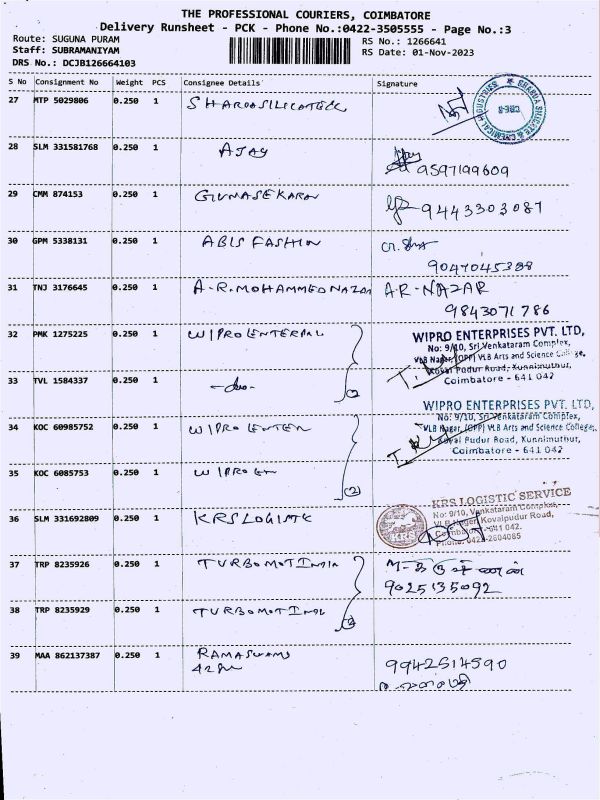 THE PROFESSIONAL COURIERS, COIMBATORE
Delivery Runsheet - PCK - Phone No.:0422-3505555 - Page No.:3
Route: SUGUNA PURAM
RS No.: 1266641
Staff: SUBRAMANIYAM
RS Date: 01-Nov-2023
DRS No.: DCJB126664103
S No Consignment No Weight PCS Consignee Details Signature
27 MTP 5029806 0.250 1
28 SLM 331581768 0.250 1 AJAY
9597199609
29 CMM 874153 0.250 1 GUNASEKARAN
9443303087
30 GPM 5338131 0.250 1 ABIS FASHION
31 TNJ 3176645 0.250 1 A-R. MOHAMMED NAZAR A R - NAZAR
9843071786
32 PMK 1275225 0.250 1 WIPRO
WIPRO ENTERPRISES PVT. LTD,
No: 9/10, Sri Venkataram Complex,
VLB Nagar, (OPP) VLB Arts and Science College,
Kovai Pudur Road, Kunnimuthur,
Coimbatore - 641 042
33 TVL 1584337 0.250 1 -do-
34 KOC 60985752 0.250 1 WIPRO
(2)
WIPRO ENTERPRISES PVT. LTD,
No: 9/10, Sri Venkataram Complex,
VLB Nagar, (OPP) VLB Arts and Science College,
Kovai Pudur Road, Kunnimuthur,
Coimbatore - 641 042
35 KOC 6085753 0.250 1 WIPRO
(2)
36 SLM 331692809 0.250 1 KRS LOGISTIC
KRS LOGISTIC SERVICE
No: 9/10, Venkataram Complex,
VLB Nager, Kovaipudur Road,
Coimbatore - 641 042.
Phone: 0422-2604085
37 TRP 8235926 0.250 1 TURBOMOT INDIA
9025135092
38 TRP 8235929 0.250 1 TURBOMOT INDIA
39 MAA 862137387 0.250 1 RAMASWAMY
9942514590